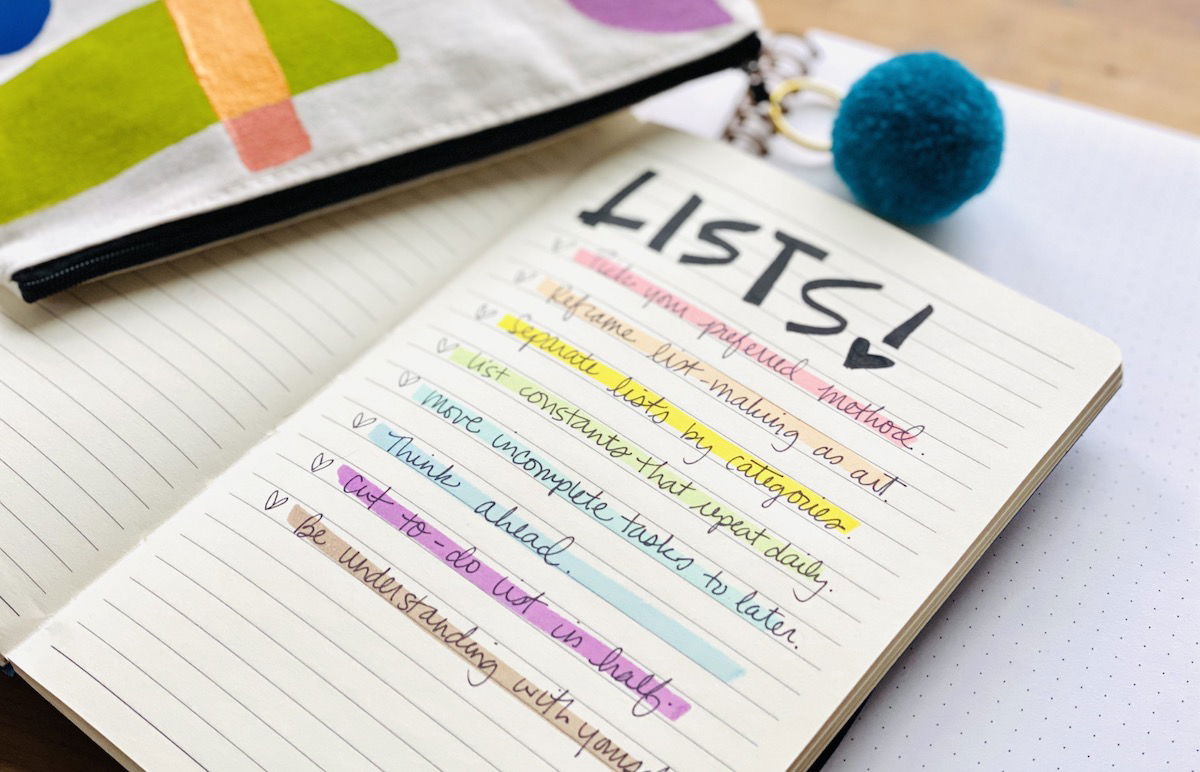 LISTS!
Pick your preferred method.
Reframe list-making as art.
Separate lists by categories.
List constants that repeat daily.
Move incomplete tasks to later.
Think ahead.
Cut to-do list in half.
Be understanding with